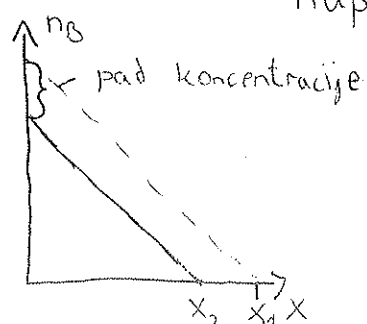 nap
n_B
pad koncentracije
x₂ x₁ x